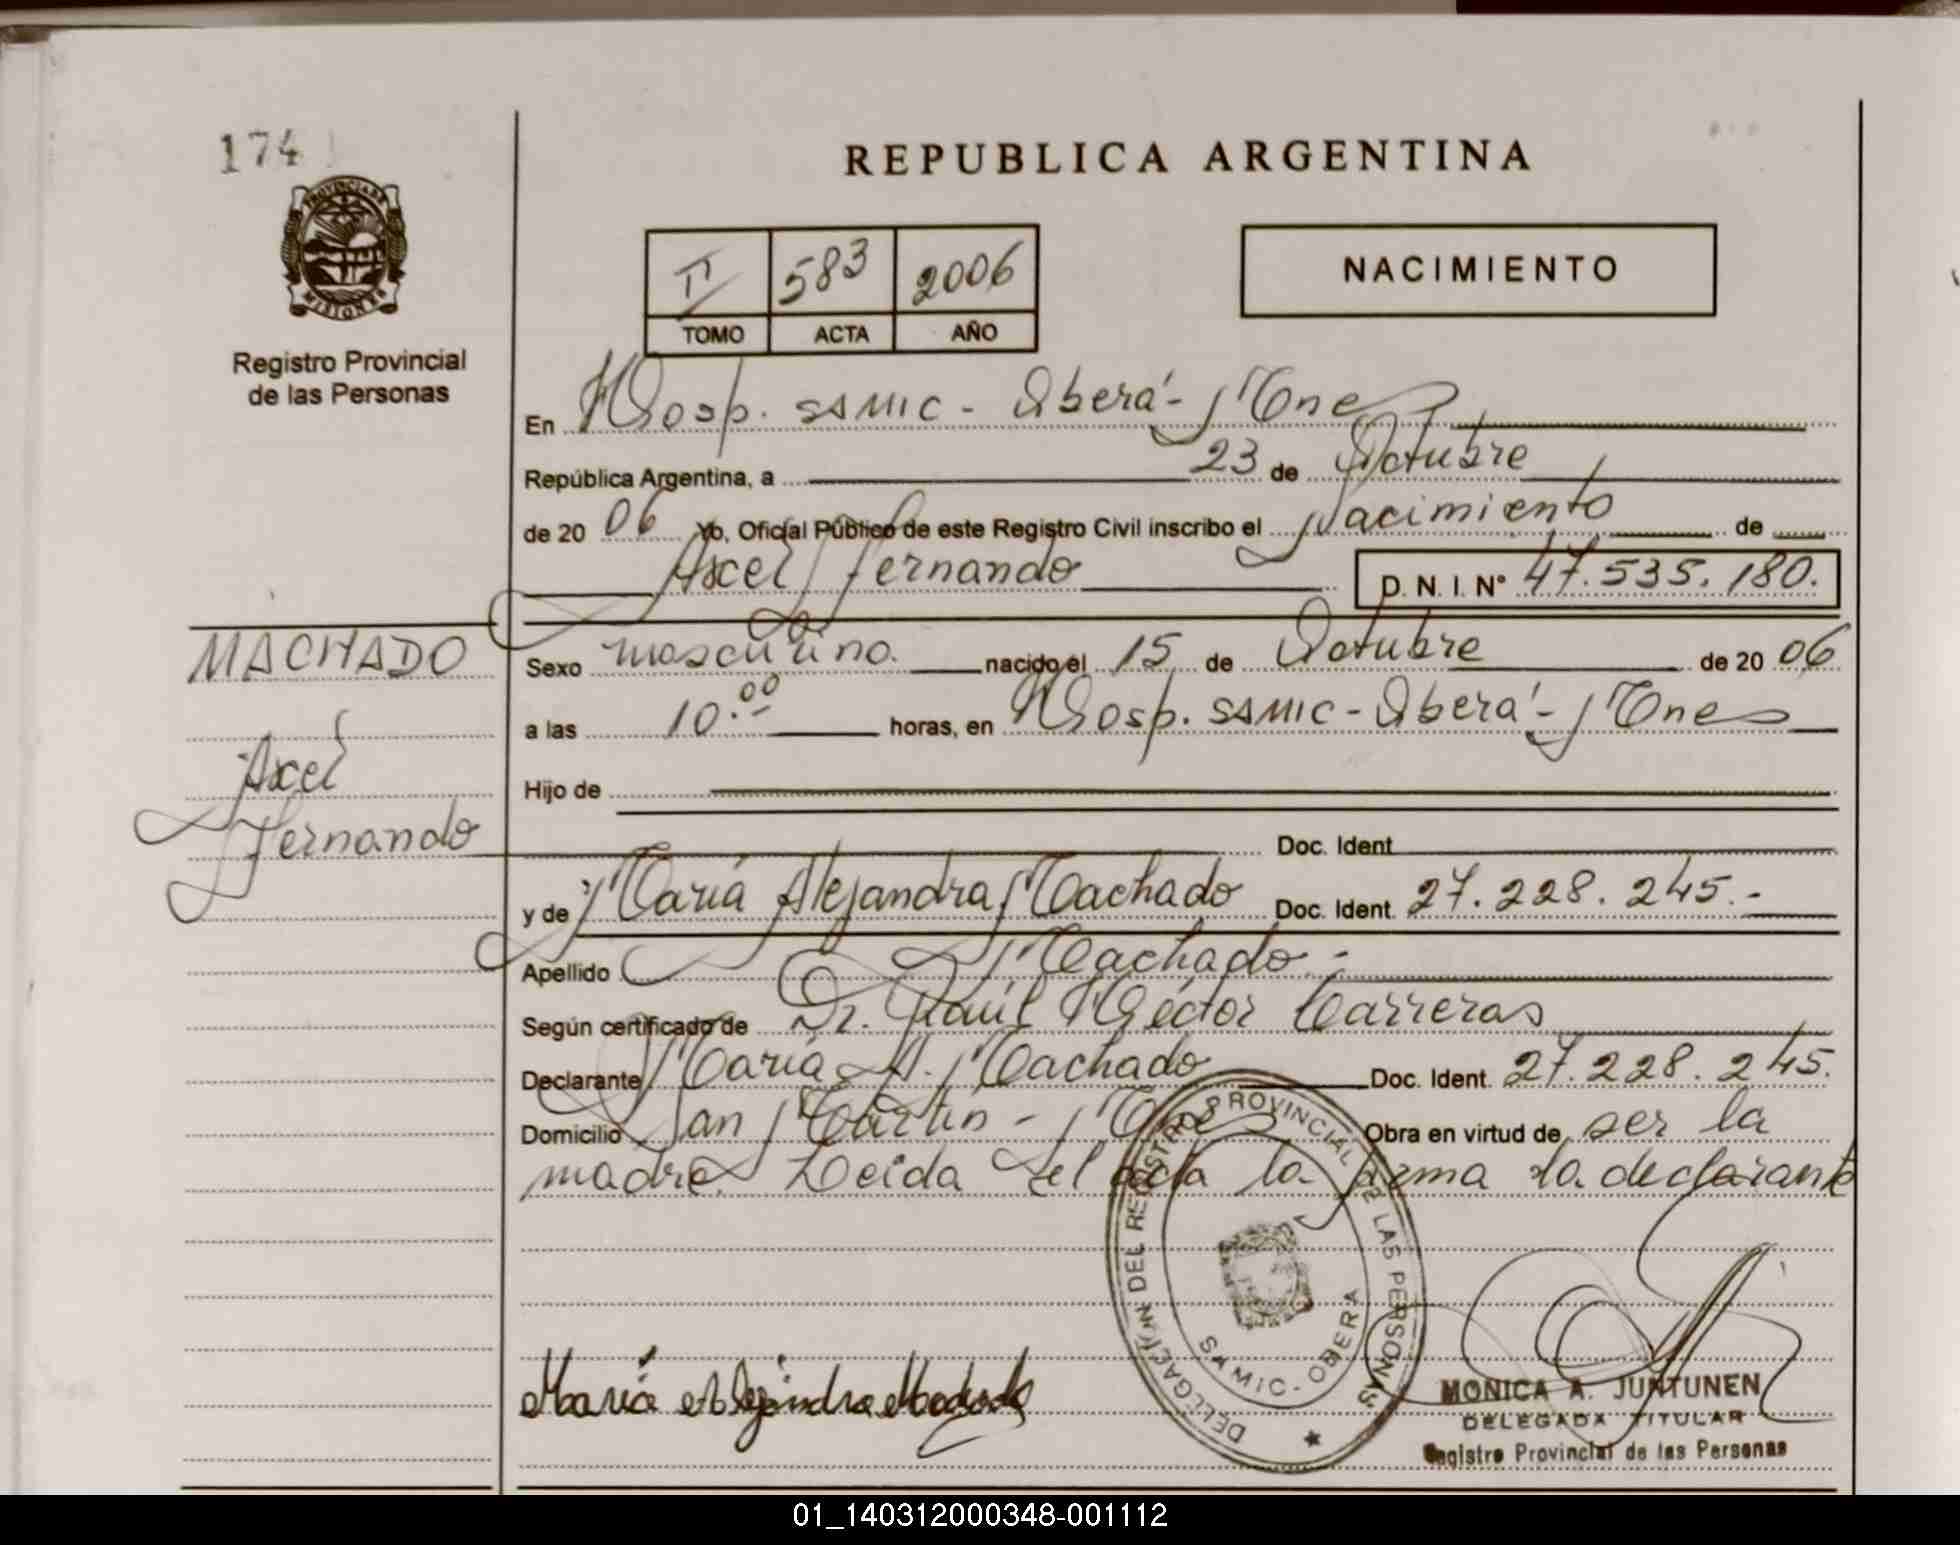 174
REPUBLICA ARGENTINA
PROVINCIA DE
MISIONES
Registro Provincial
de las Personas
II 583 2006
TOMO ACTA AÑO
NACIMIENTO
En Hosp. SAMIC - Oberá - Mnes
República Argentina, a 23 de Octubre
de 20 06 Yo, Oficial Público de este Registro Civil inscribo el Nacimiento de
Axcel Fernando D. N. I. N° 47.535.180.
MACHADO
Axcel
Fernando
Sexo masculino. nacido el 15 de Octubre de 20 06
a las 10.00 horas, en Hosp. SAMIC - Oberá - Mnes
Hijo de
Doc. Ident
y de María Alejandra Machado Doc. Ident. 27.228.245.-
Apellido Machado.-
Según certificado de Dr. Raúl Héctor Carreras
Declarante María A. Machado Doc. Ident. 27.228.245.
Domicilio San Martín - Mnes Obra en virtud de ser la
madre. Leída el acta la firma la declarante
DELEGACIÓN DEL REGISTRO PROVINCIAL DE LAS PERSONAS
SAMIC - OBERA
María Alejandra Machado
MONICA A. JUNTUNEN
DELEGADA TITULAR
Registro Provincial de las Personas
01_140312000348-001112